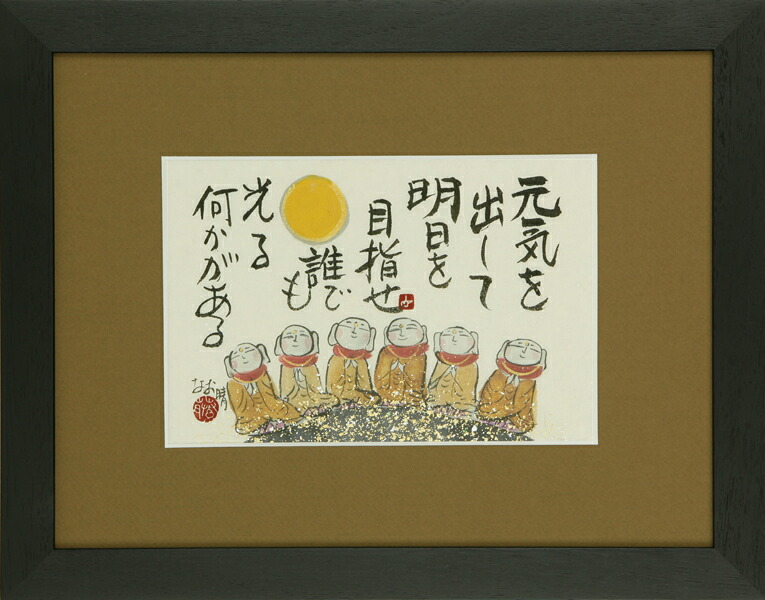 元気を
出して
明日を
目指せ
誰で
も
光る
何かがある
なお晴